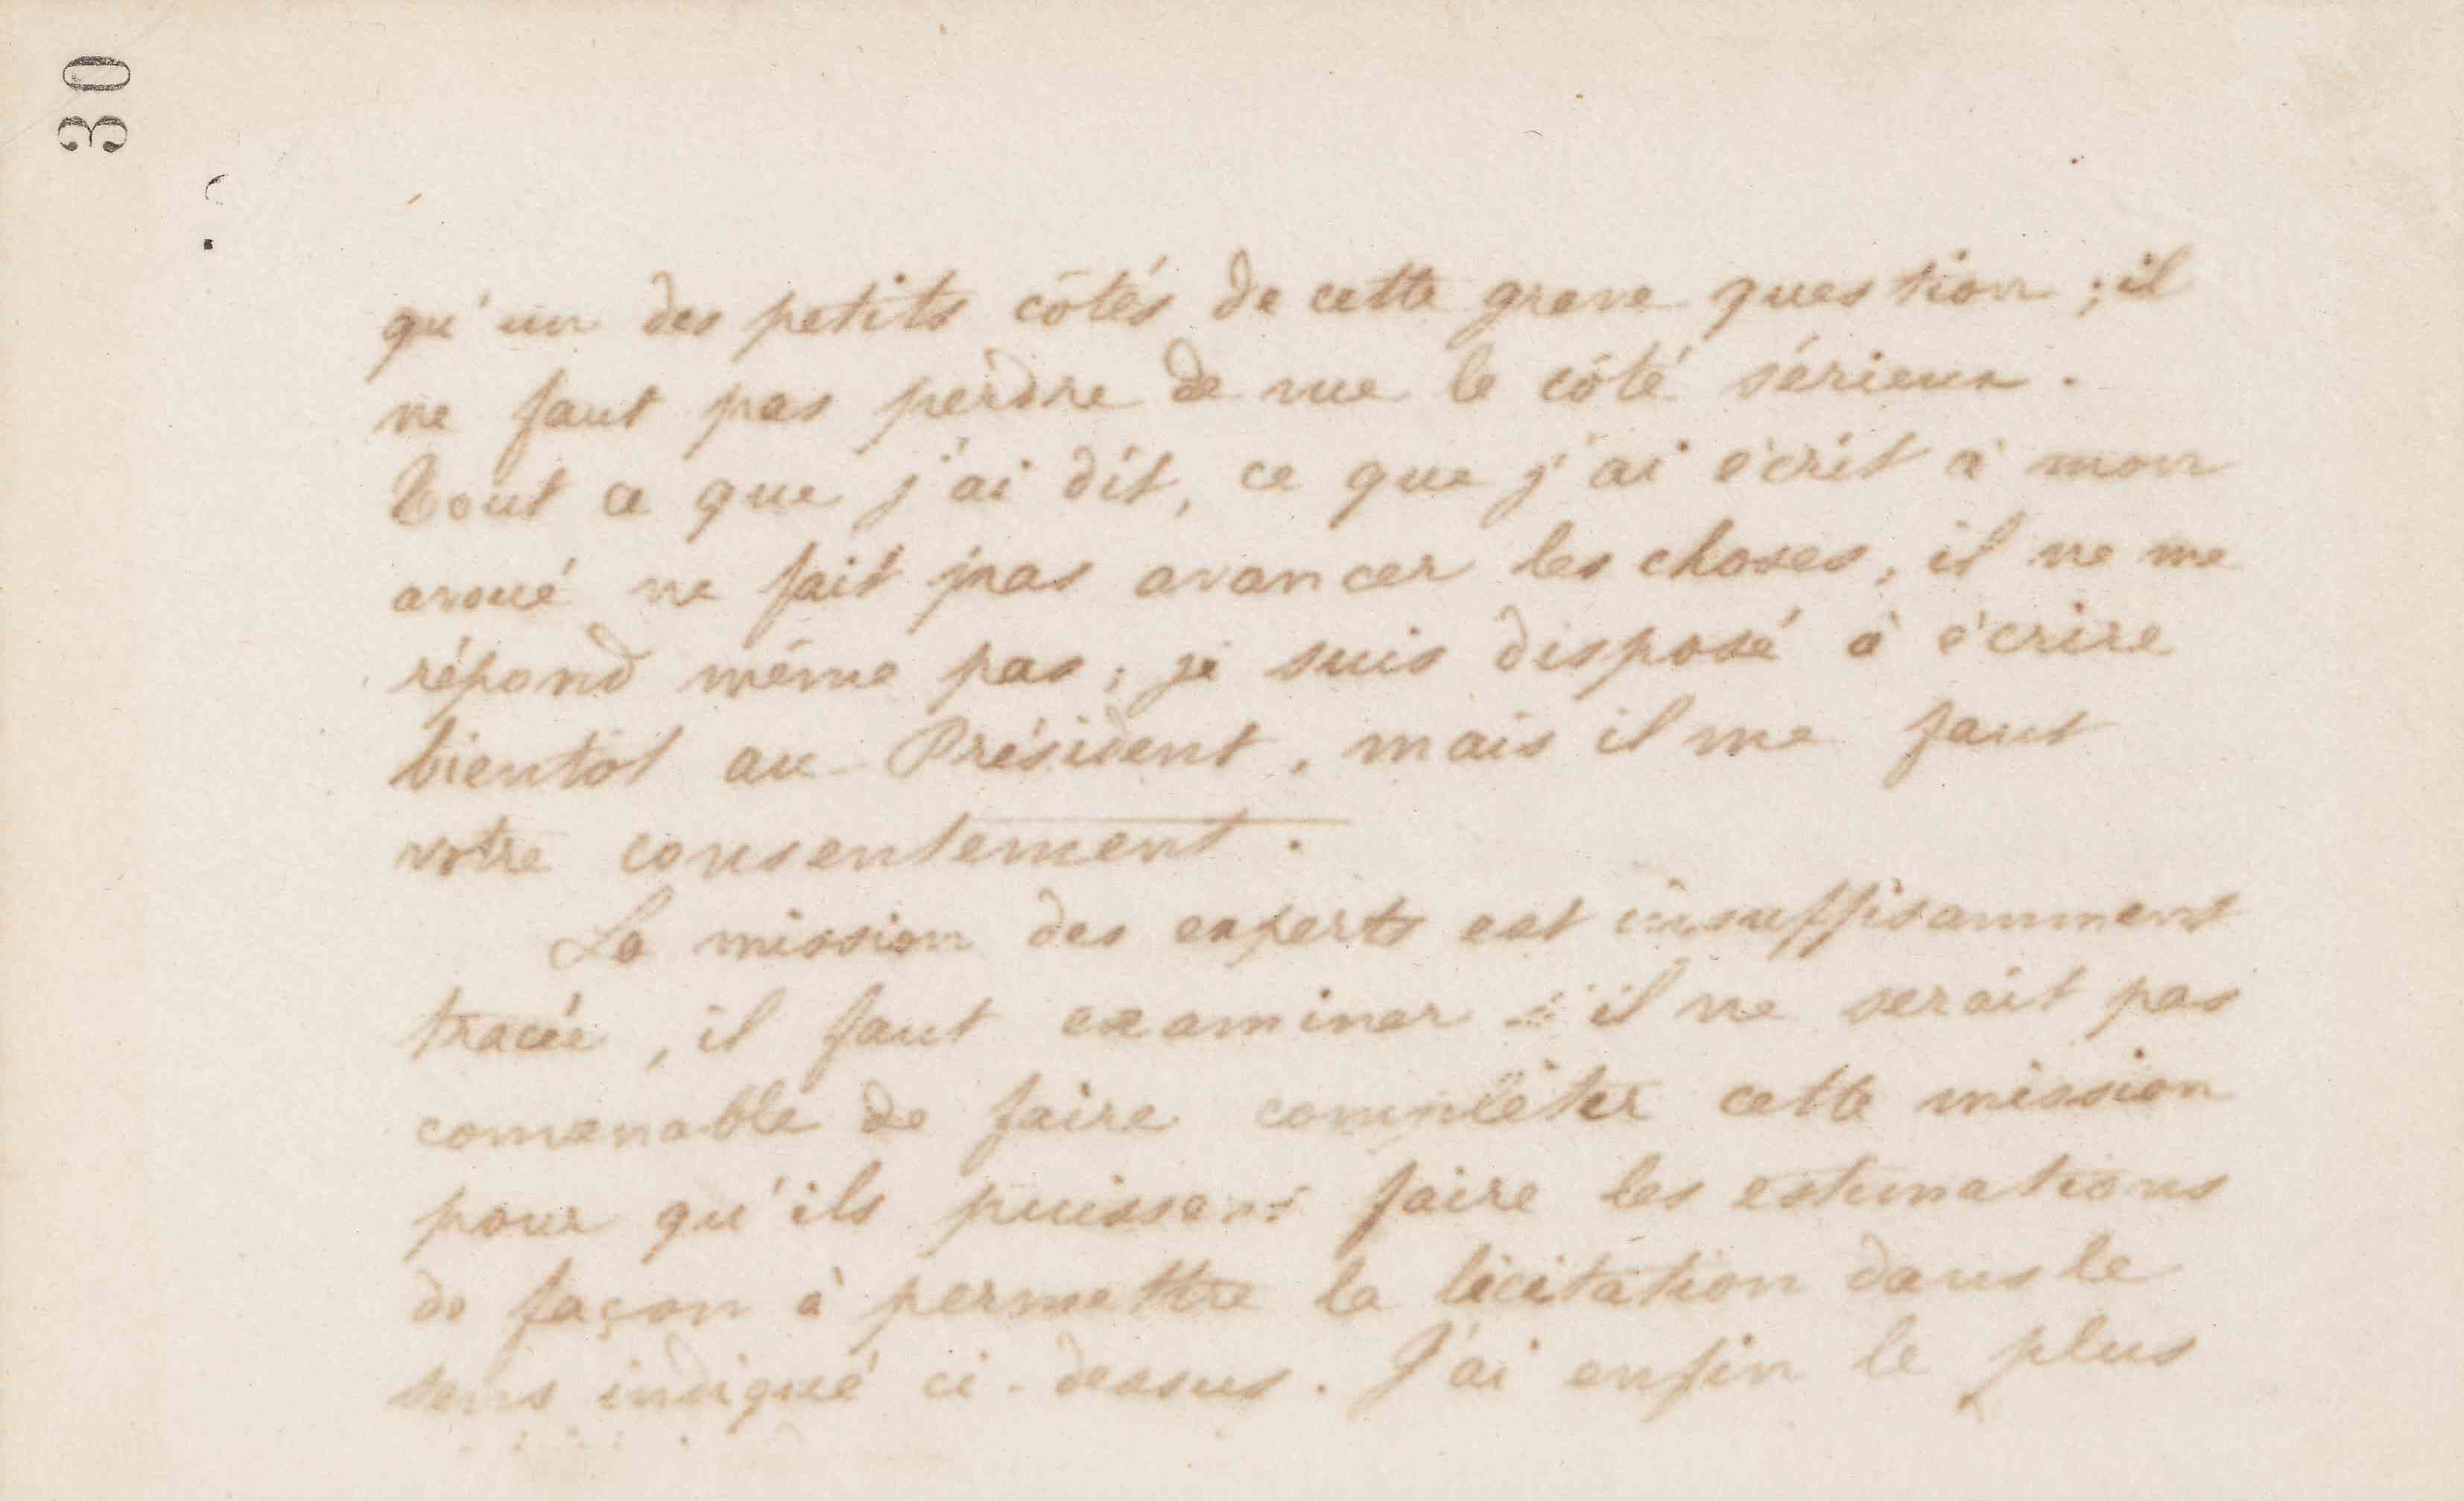 30
qu'un des petits côtés de cette grave question ; il
ne faut pas perdre de vue le côté sérieux.
Tout ce que j'ai dit, ce que j'ai écrit à mon
avoué ne fait pas avancer les choses, il ne me
répond même pas ; je suis disposé à écrire
bientôt au Président, mais il me faut
votre consentement.
La mission des experts est insuffisamment
tracée, il faut examiner s'il ne serait pas
convenable de faire complèter cette mission
pour qu'ils puissent faire les estimations
de façon à permettre la licitation dans le
sens indiqué ci-dessus. J'ai enfin le plus